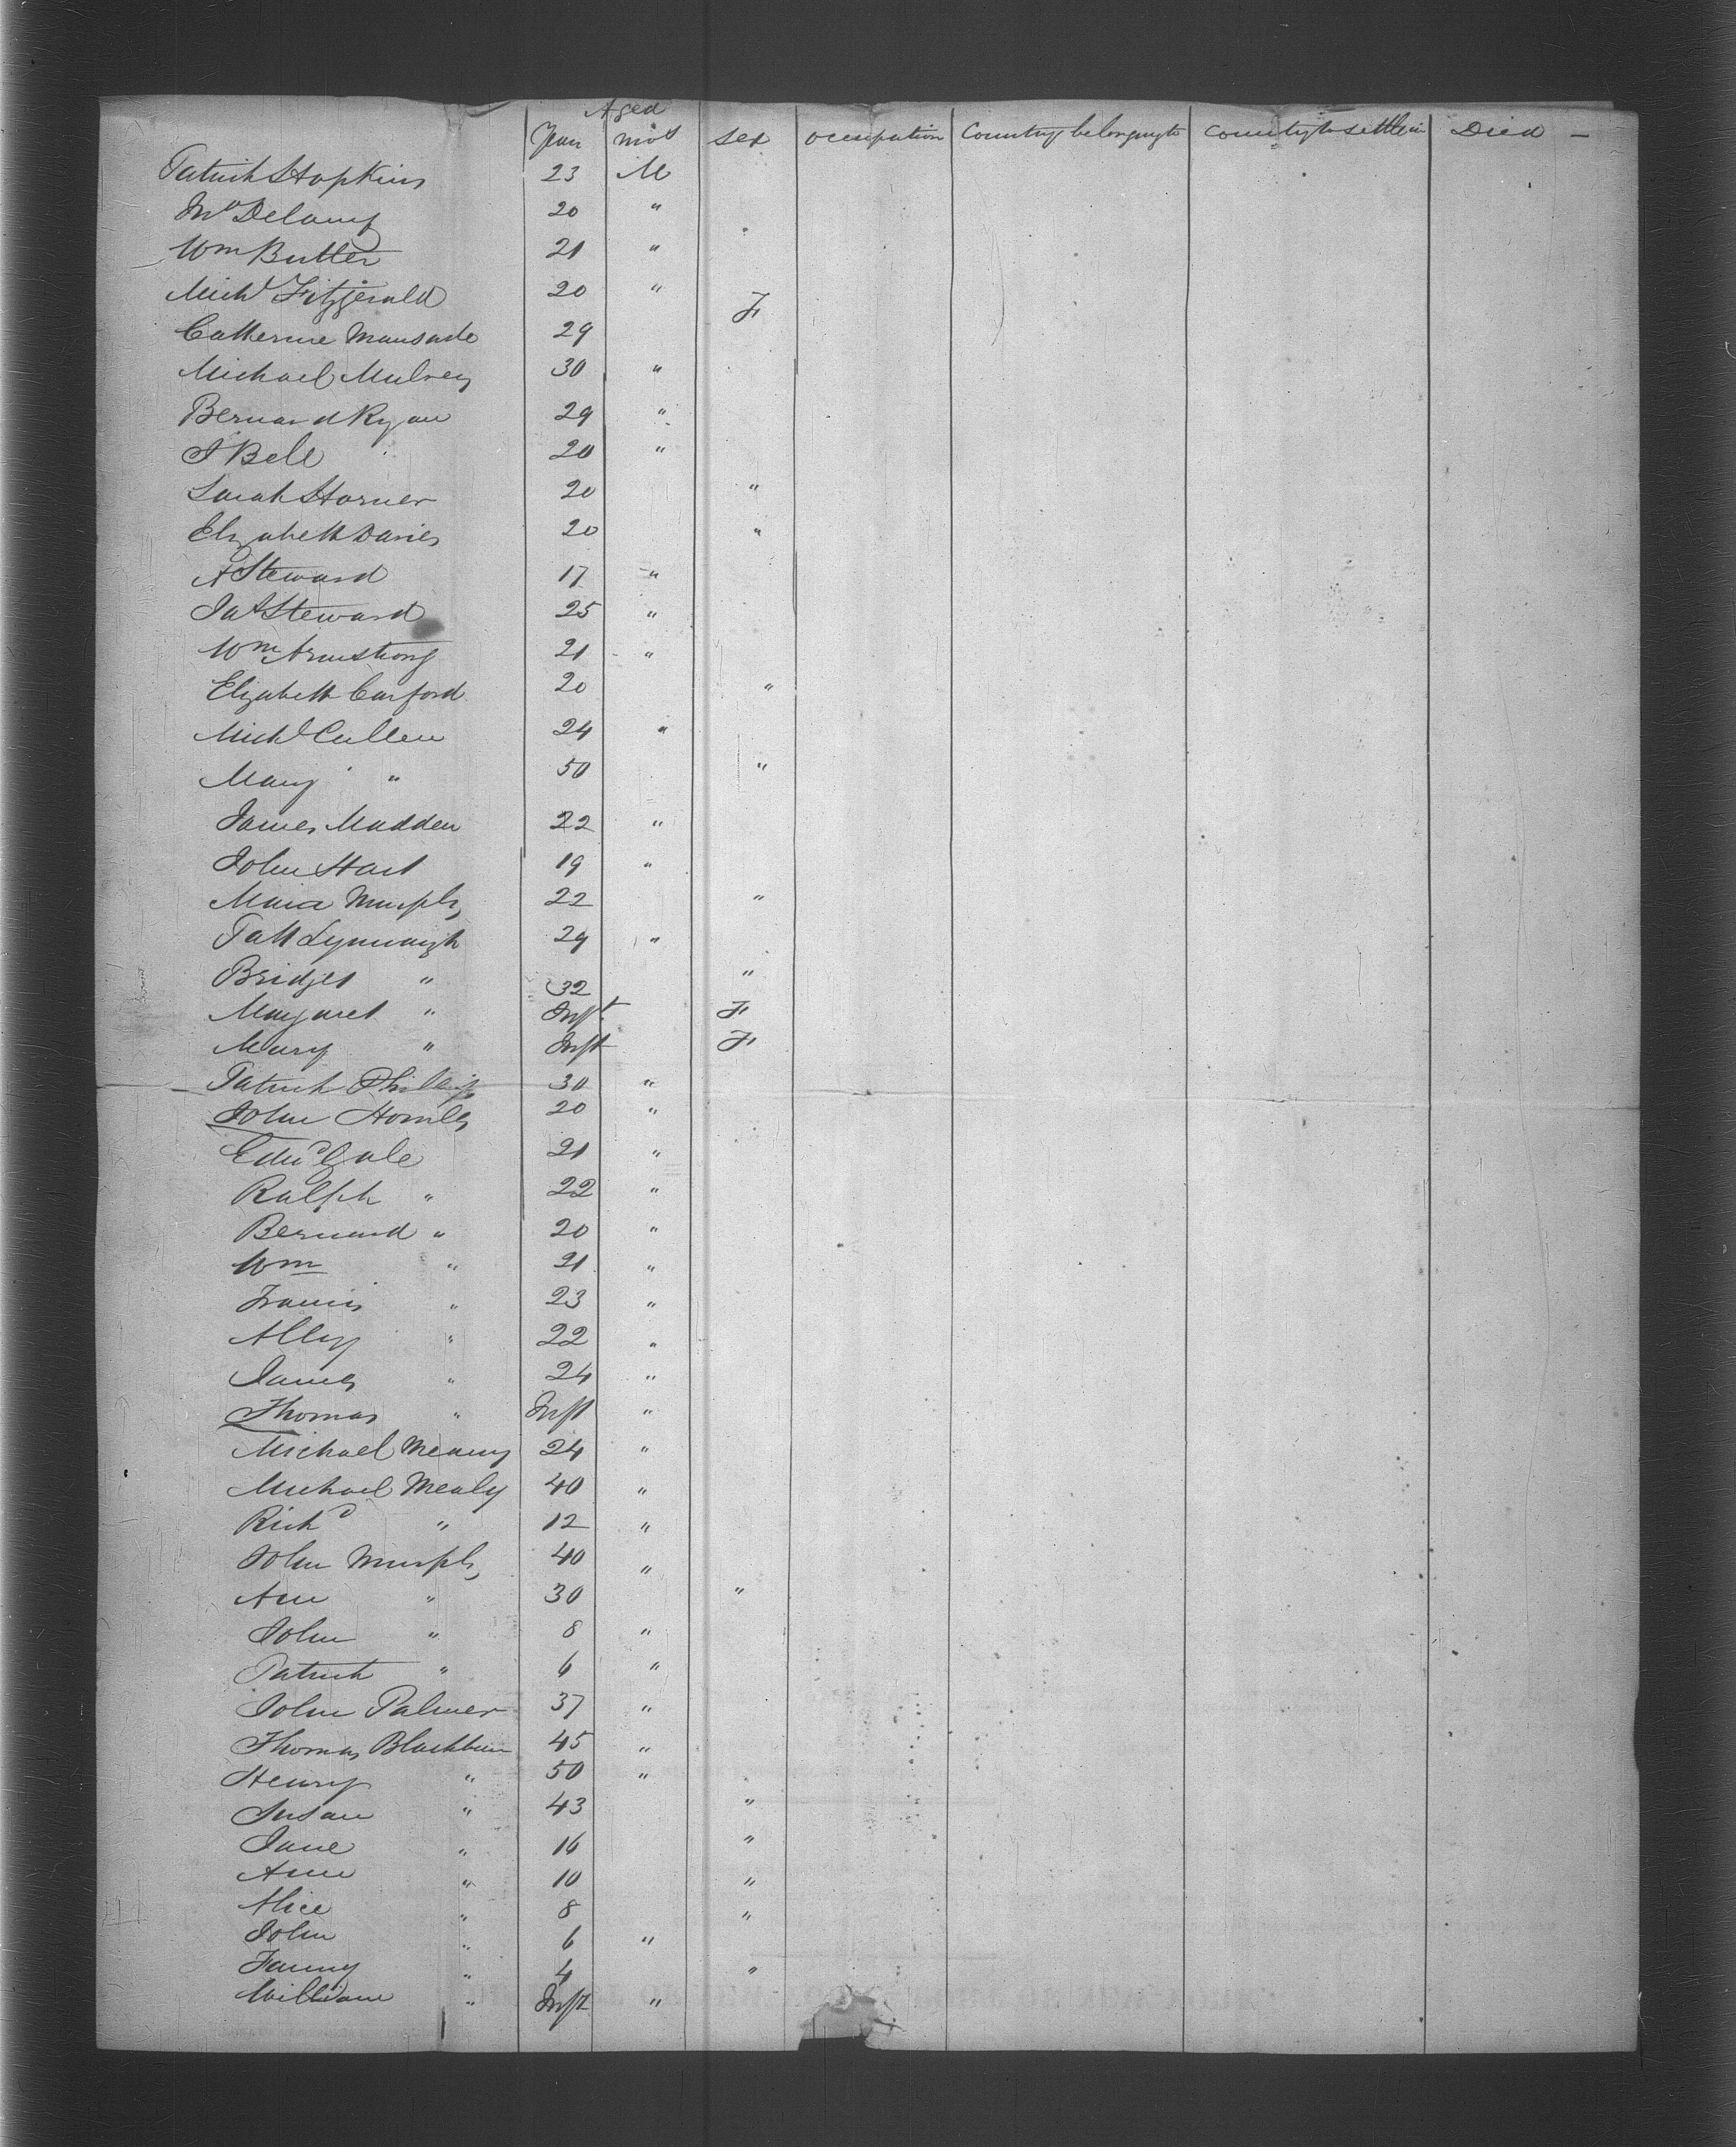 Aged
Years mos sex occupation Country belonging to country to settle in Died —
Patrick Hopkins 23 M
Jno Delany 20 "
Wm Butler 21 "
Michl Fitzgerald 20 "
Catherine 29 F
Michael Mulvey 30 "
Bernard Ryan 29 "
J Bell 20 "
Sarah Horner 20 "
Elizabeth Davies 20 "
A Steward 17 "
Jas Steward 25 "
Wm Armstrong 21 "
Elizabeth Carford 20 "
Michl Cullen 24 "
Mary " 50 "
James Madden 22 "
John Hart 19 "
Maria Murphy 22 "
Patk 29 "
Bridget " 32 "
Margaret " Inft F
Mary " Inft F
Patrick Philips 30 "
John 20 "
Edwd Gale 21 "
Ralph " 22 "
Bernard " 20 "
Wm " 21 "
Francis " 23 "
Ally " 22 "
James " 24 "
Thomas " Inft "
Michael Meany 24 "
Michael Mealy 40 "
Richd " 12 "
John Murphy 40 "
Ann " 30 "
John " 8 "
Patrick " 6 "
John Palmer 37 "
Thomas Blackburn 45 "
Henry " 50 "
Susan " 43 "
Jane " 16 "
Ann " 10 "
Alice " 8 "
John " 6 "
Fanny " 4 "
William " Inft "